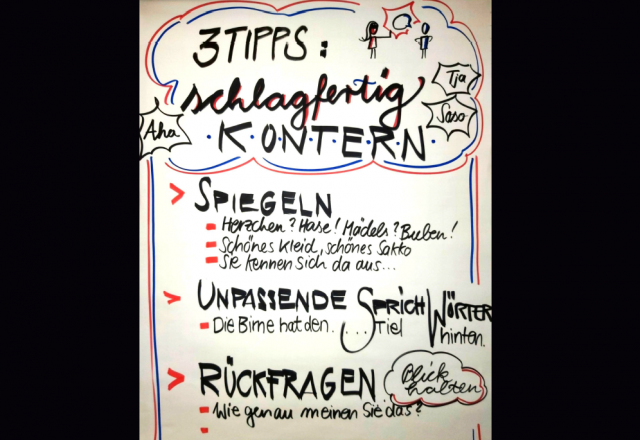 3 TIPPS:
schlagfertig
Tja
Soso
Aha
K·O·N·T·E·R·N
> SPIEGELN
- Herzchen? Hase! Mädels? Buben!
- Schönes Kleid, schönes Sakko
- Sie kennen sich da aus...
> UNPASSENDE SPRICHWÖRTER
- Die Birne hat den....Stiel hinten.
> RÜCKFRAGEN
Blick halten
- Wie genau meinen Sie das?